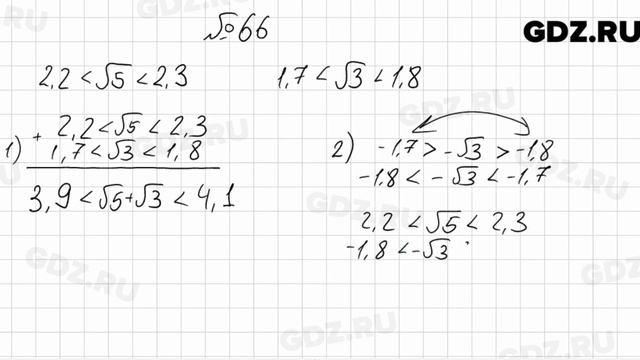 №66
GDZ.RU
2,2 < √5 < 2,3
1,7 < √3 < 1,8
1)
+ 2,2 < √5 < 2,3
1,7 < √3 < 1,8
3,9 < √5 + √3 < 4,1
2) -1,7 > -√3 > -1,8
-1,8 < -√3 < -1,7
2,2 < √5 < 2,3
-1,8 < -√3
GDZ.RU
GDZ.RU
GDZ.RU
GDZ.RU
GDZ.RU
GDZ.RU